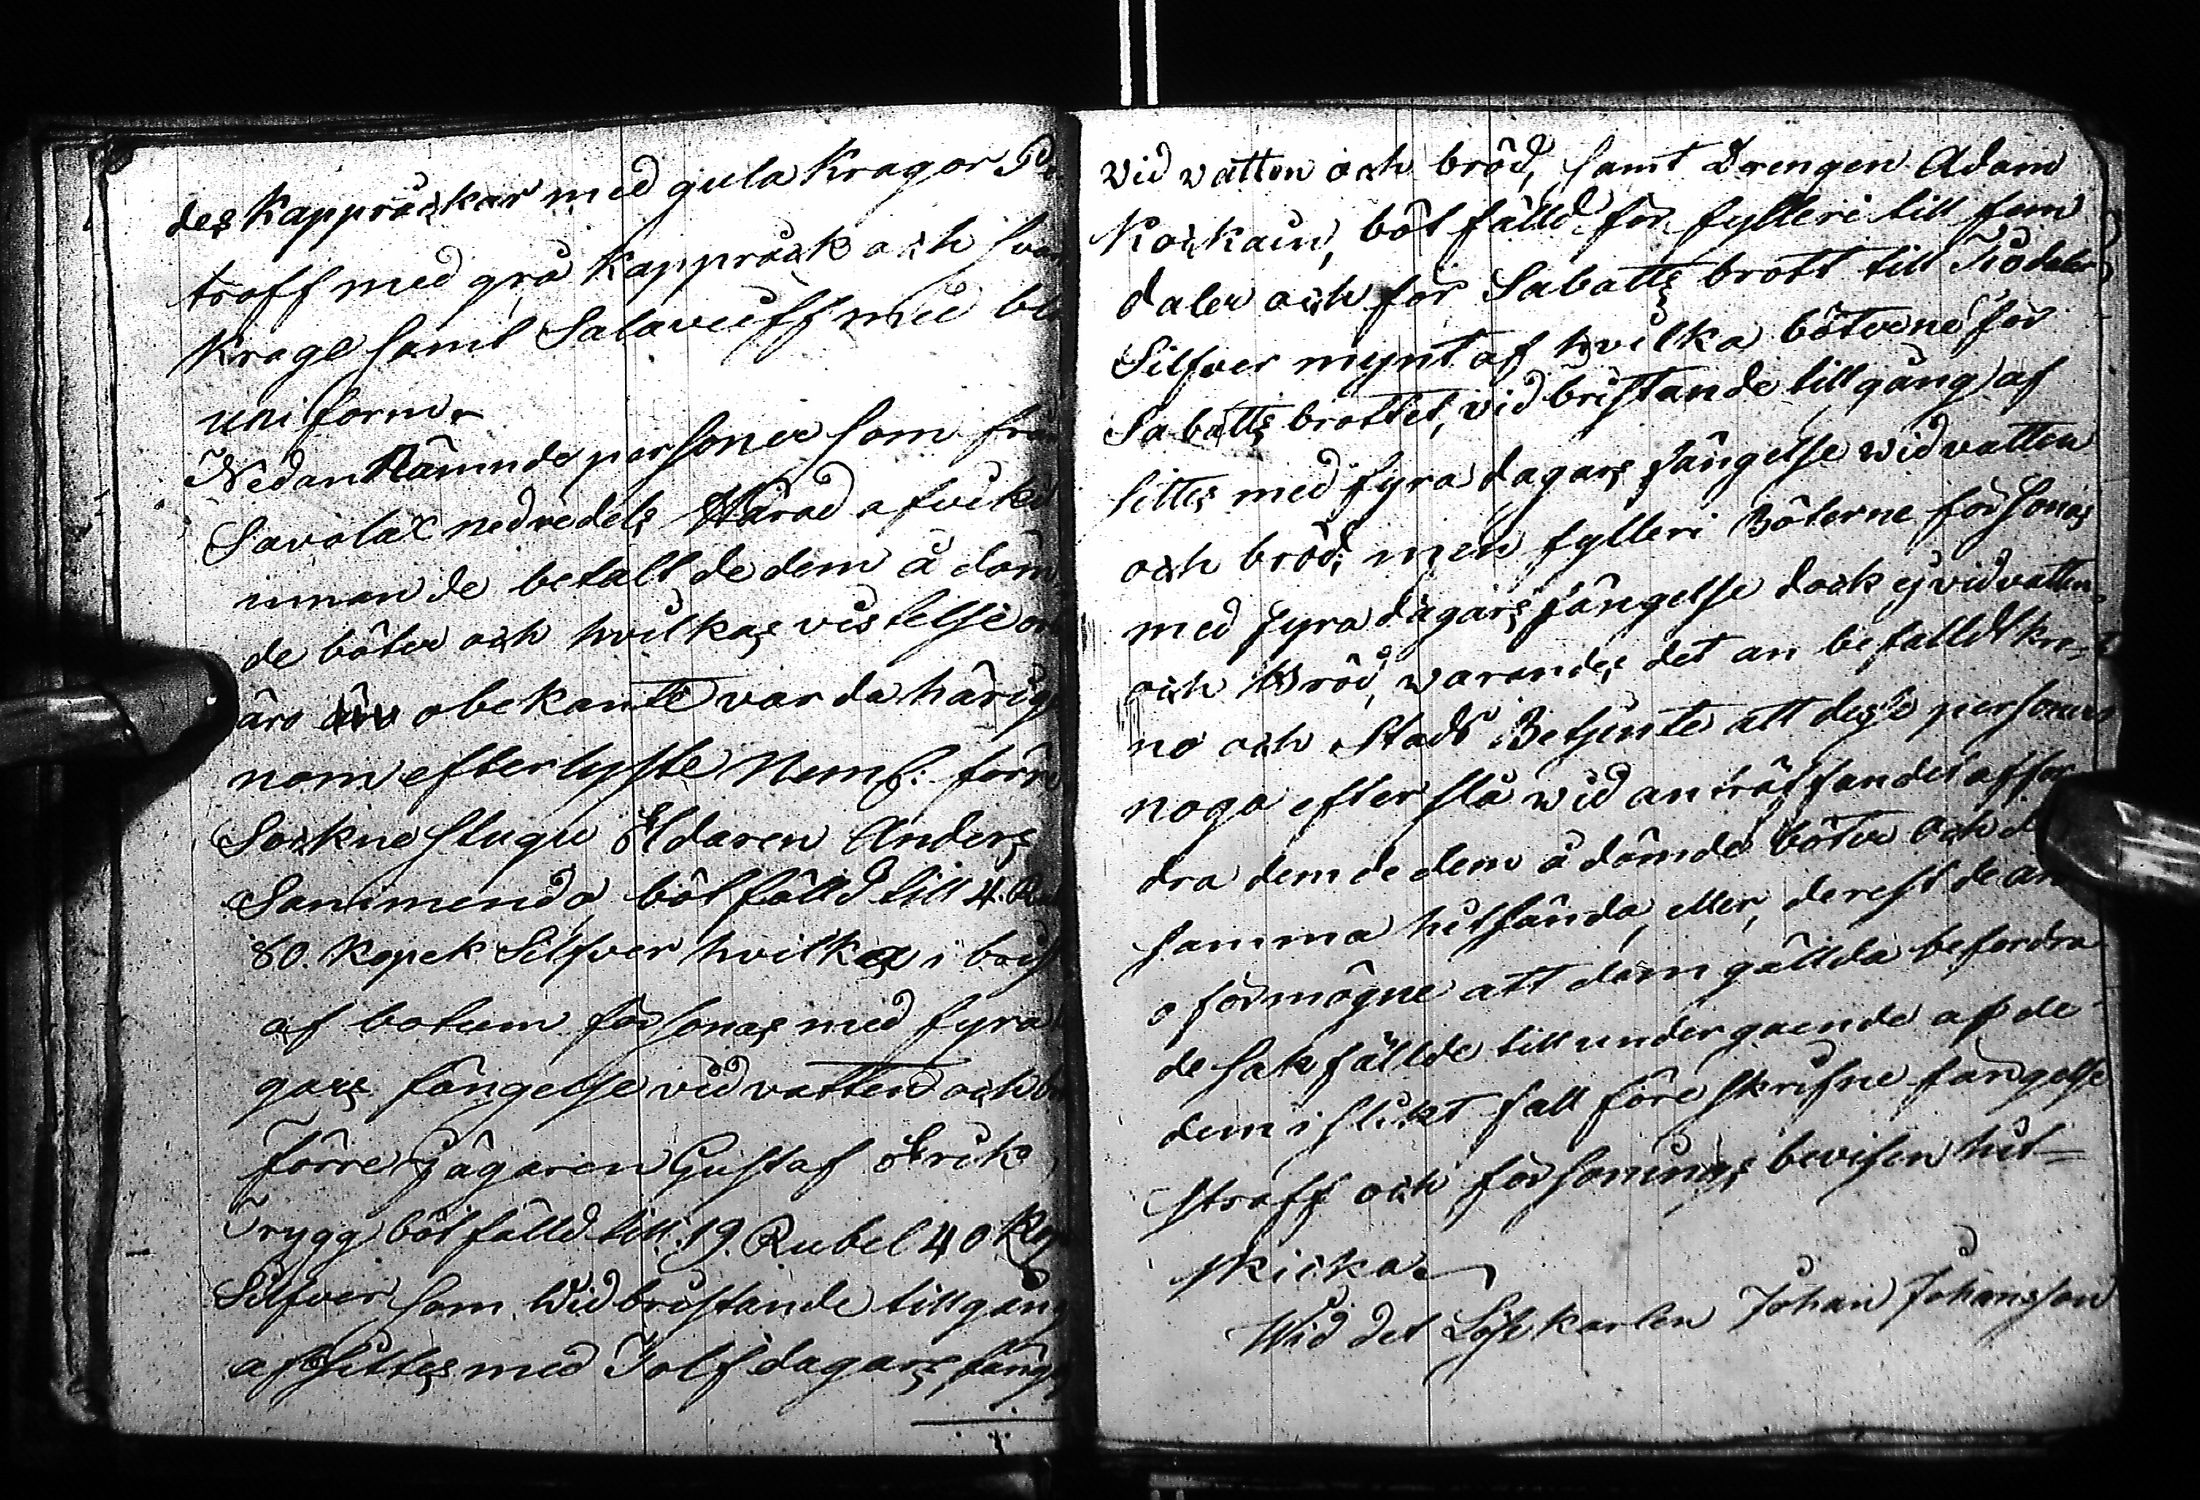 des Kappråckar med gula Kragor
troff med grå Kappråck och
Krage samt Salavuiff med
uniform
Nedannämnde personer som
Savolax nedredels Härad afvik
innan de betallt de dem å döm
de böter och hvilkas vistelse
äro obekante varda härig
nom efterlyste Neml: förre
Sockne stugu Eldaren Anders
Sanimenda bötfälld till 4. Ru
80. Kopek Silfver hvilka i brist
af botum försonas med fyra
gars fängelse vid vatten och
Förre Jägaren Gustaf Erik
Trygg bötfälld till 19. Rubel 40 Kop
Silfver som vid bristande tillgång
afsittes med Tolf dagars fänge
vid vatten och bröd, samt Drengen Adam
Kockain, böt fälld för fylleri till fem
daler och för Sabatts brott till Tio daler
Silfver mynt af hvilka böterne för
Sabatts brottet, vid bristande tillgång af
sittes med fyra dagars fängelse wid vatten
och bröd; men fylleri Böterne försonas
med fyra dagars fängelse dock ej vid vatten
och Bröd, warandes det an befalldt kro-
no och Stads Betjente att desse personer
noga efter slå wid anträffandet affor
dra dem de dem ådömde böter och
samma hitsända, eller, derest de
oförmögne att dem gällda befordra
de sakfällde till undergående af de
dem i slikt fall föreskrifne fängelse
straff och försonings bevisen hit-
skicka.
Wid det Löskarlen Johan Johansson